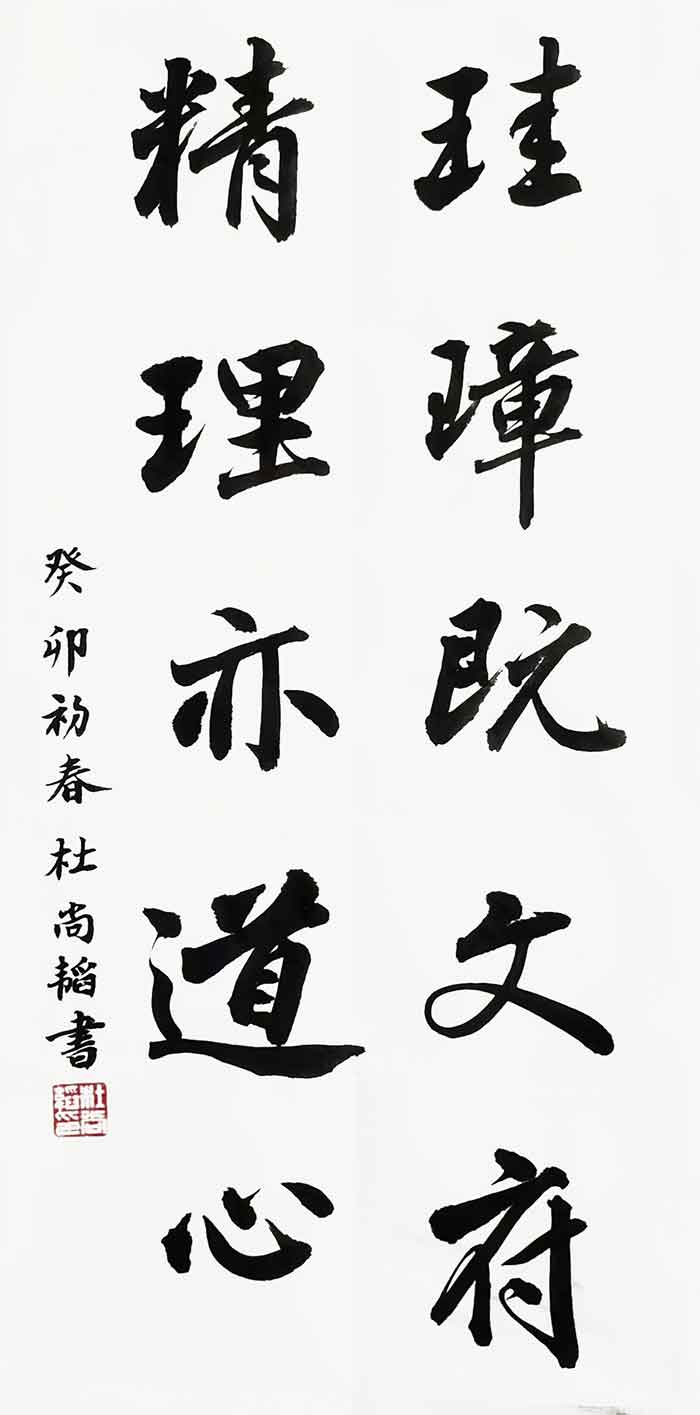 珪璋既文府
精理亦道心
癸卯初春杜尚韬書
杜尚韬印